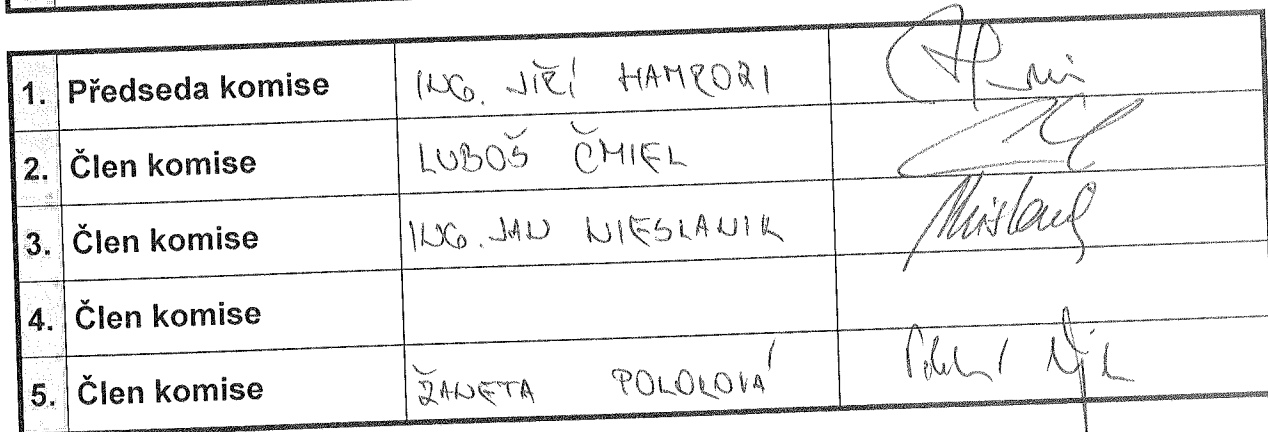 1. Předseda komise ING. JIŘÍ HAMROZI
2. Člen komise LUBOŠ ČMIEL
3. Člen komise ING. JAN NIESLANIK
4. Člen komise
5. Člen komise ŽANETA